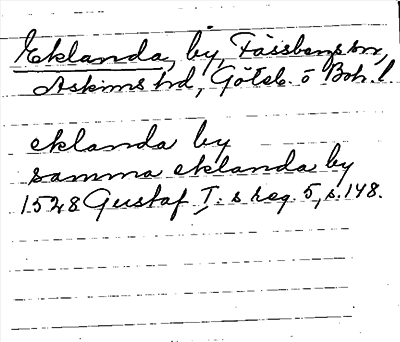 Eklanda, by, Fässbergs sn,
Askims hd, Göteb. o Boh. l.
eklanda by
samma eklanda by
1528 Gustaf I:s reg. 5, s. 148.